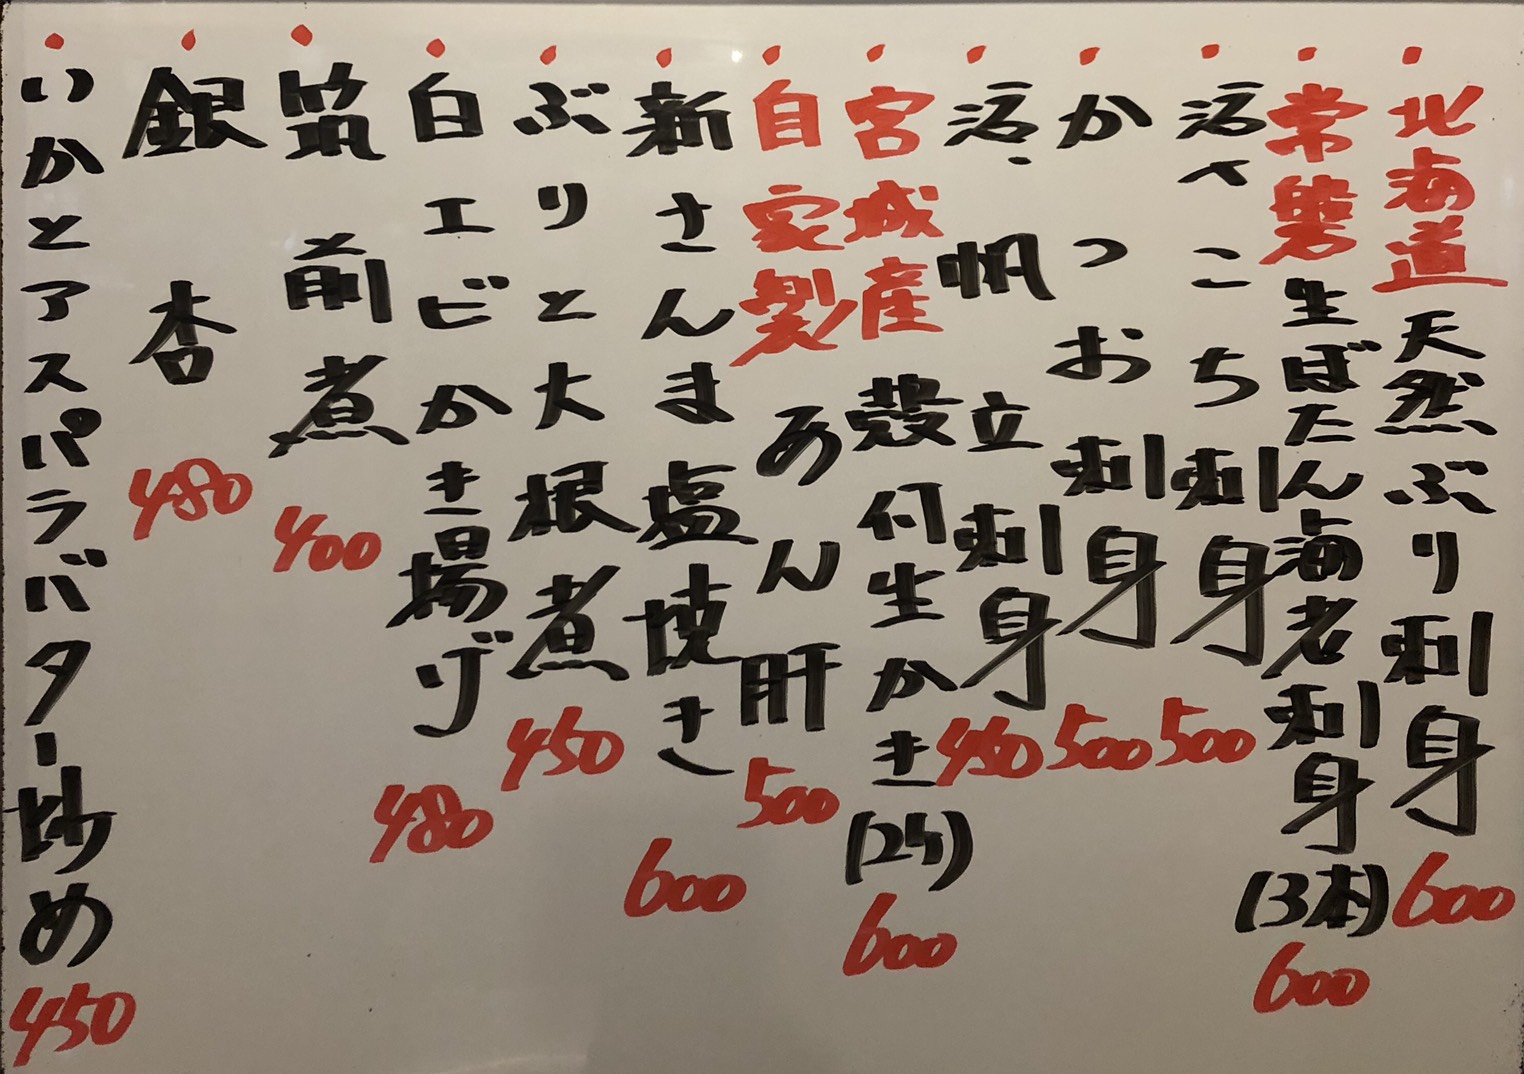 北海道天然ぶり刺身600
常磐生ぼたん海老刺身(3本)600
活〆こち刺身500
かつお刺身500
活、帆立刺身450
宮城産殻付生かき(2ヶ)600
自家製あん肝500
新さんま塩焼き600
ぶりと大根煮450
白エビかき揚げ480
筑前煮400
銀杏480
いかとアスパラバター炒め450